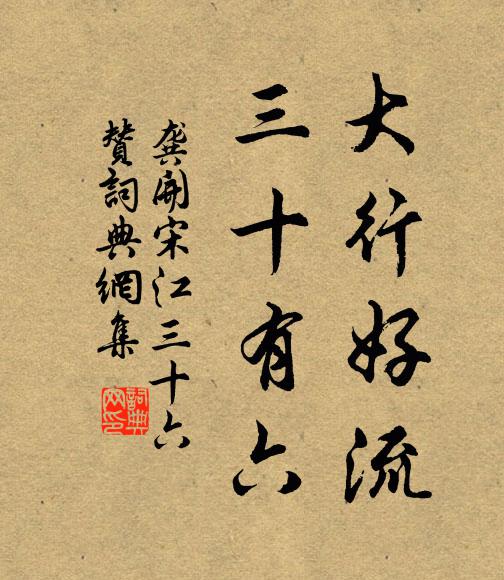 大行好流
三十有六
龔開宋江三十六
贊詞典網集
詞典网印